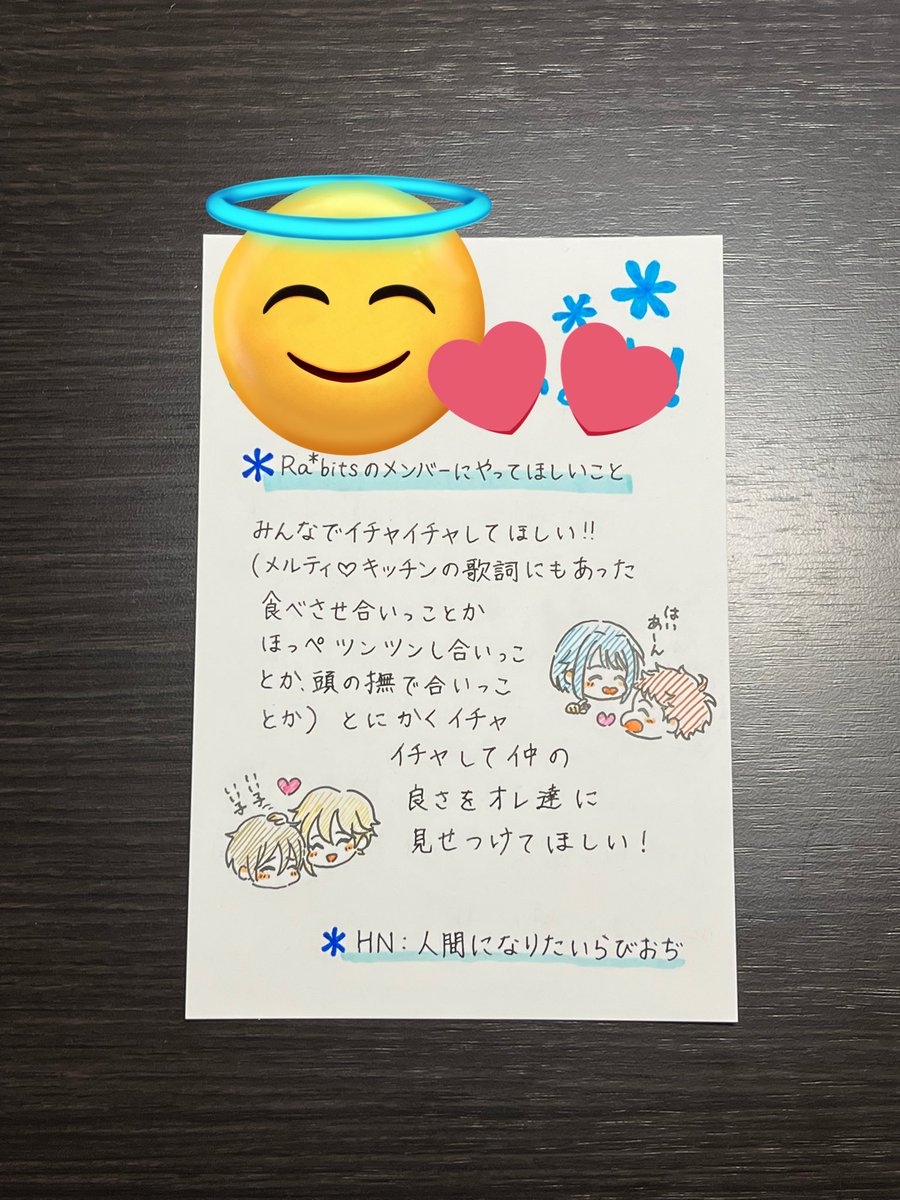 * Ra*bitsのメンバーにやってほしいこと
みんなでイチャイチャしてほしい!!
(メルティ♡キッチンの歌詞にもあった
食べさせ合いっことか
ほっぺツンツンし合いっこ
とか、頭の撫で合いっこ
とか) とにかくイチャ
イチャして仲の
良さをオレ達に
見せつけてほしい!
はい
あーん
いいこ
いいこ
* HN:人間になりたいらびおぢ